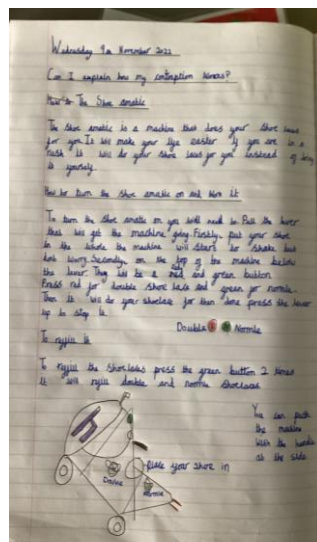 Wednesday 9th November 2022
Can I explain how my contraption works?
How to The Shoe amatic
The Shoe amatic is a machine that does your shoe laces
for you. It will make your life easier if you are in a
rush it will do your shoe laces for you instead of doing
it yourself.
How to turn the shoe amatic on and work it
To turn the shoe amatic on you will need to Push the lever
that will get the machine going. Firstly, put your shoe
in the whole the machine will start to shake but
dont worry. Secondly, on the top of the machine below
the lever. They will be a red and green button.
Press red for double shoe lace and green for normle.
Then it will do your shoelace for then done press the lever
up to stop it.
Double Normle
To reffill it
To reffill the shoelaces press the green button 2 times
it will refill double and normle shoelaces.
You can push
the machine
with the handle
at the side
place your shoe in
Double
Normle